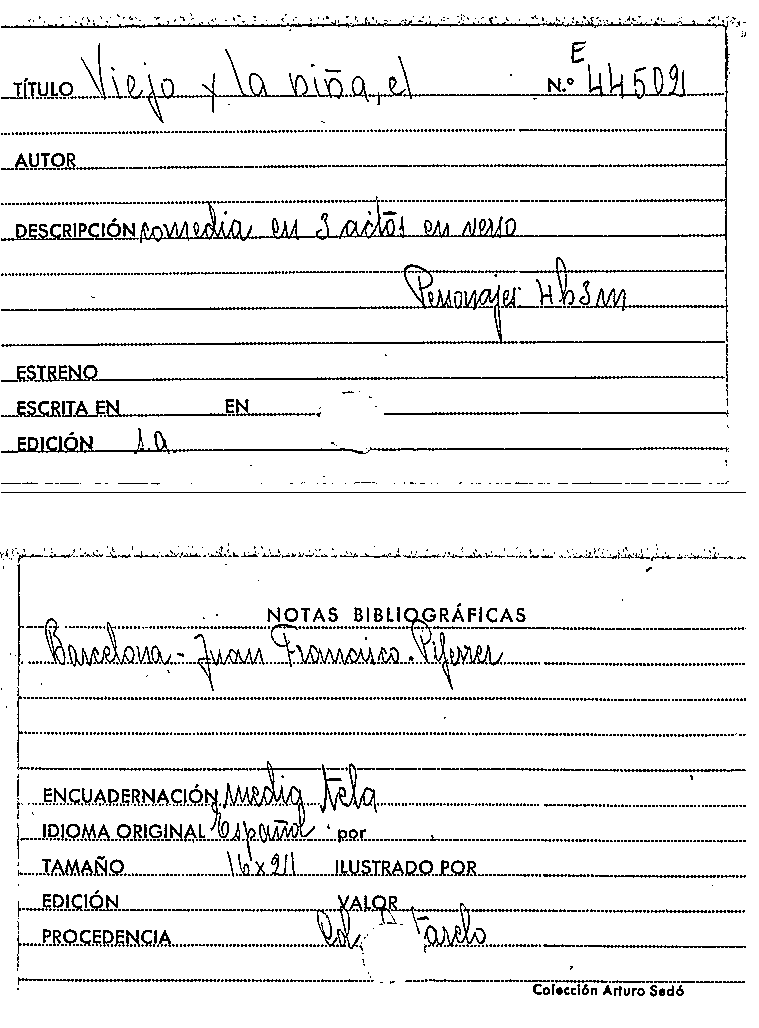 E
TÍTULO Viejo y la niña, el N.º 445021
AUTOR
DESCRIPCIÓN comedia en 3 actos en verso
Personajes 4h3m
ESTRENO
ESCRITA EN EN
EDICIÓN s.a
NOTAS BIBLIOGRÁFICAS
Barcelona - Juan Francisco Piferrer
ENCUADERNACIÓN media tela
IDIOMA ORIGINAL Español por
TAMAÑO 16x211 ILUSTRADO POR
EDICIÓN VALOR
PROCEDENCIA Col
Colección Arturo Sedó